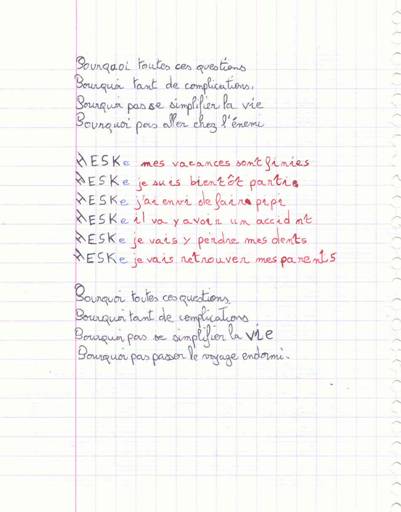 Pourquoi toutes ces questions
Pourquoi tant de complications.
Pourquoi pas se simplifier la vie
Pourquoi pas aller chez l'énemi
ESKe mes vacances sont finies
ESKe je suis bientôt partie
ESKe j'ai envi de faire pipi
ESKe il va y avoir un accident
ESKe je vais y perdre mes dents
ESKe je vais retrouver mes parents
Pourquoi toutes ces questions
Pourquoi tant de complications
Pourquoi pas se simplifier la vie
Pourquoi pas passer le voyage endormi.